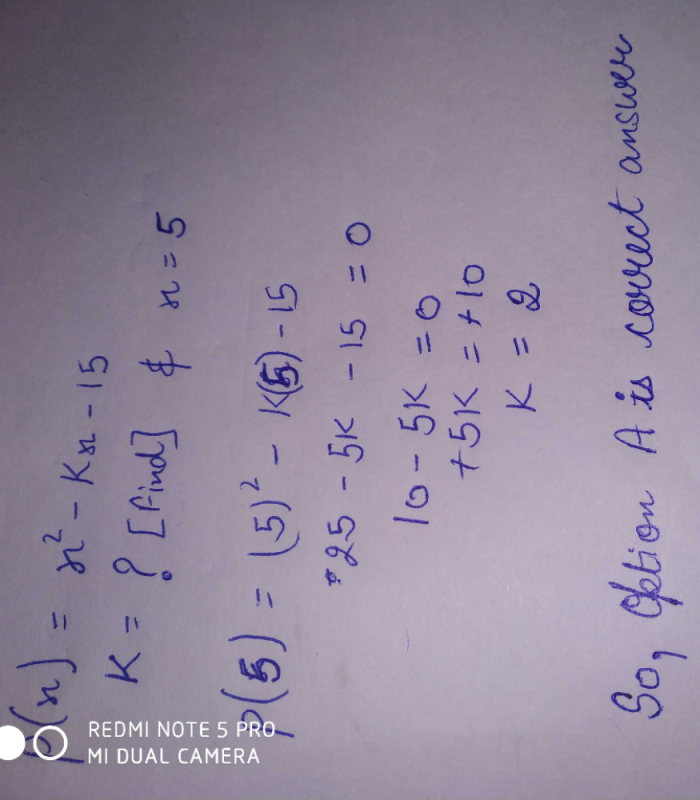 P(x) = x² - Kx - 15
K = ? [find] & x = 5
P(5) = (5)² - K(5) - 15
25 - 5K - 15 = 0
10 - 5K = 0
+5K = +10
K = 2
So, Option A is correct answer
REDMI NOTE 5 PRO
MI DUAL CAMERA